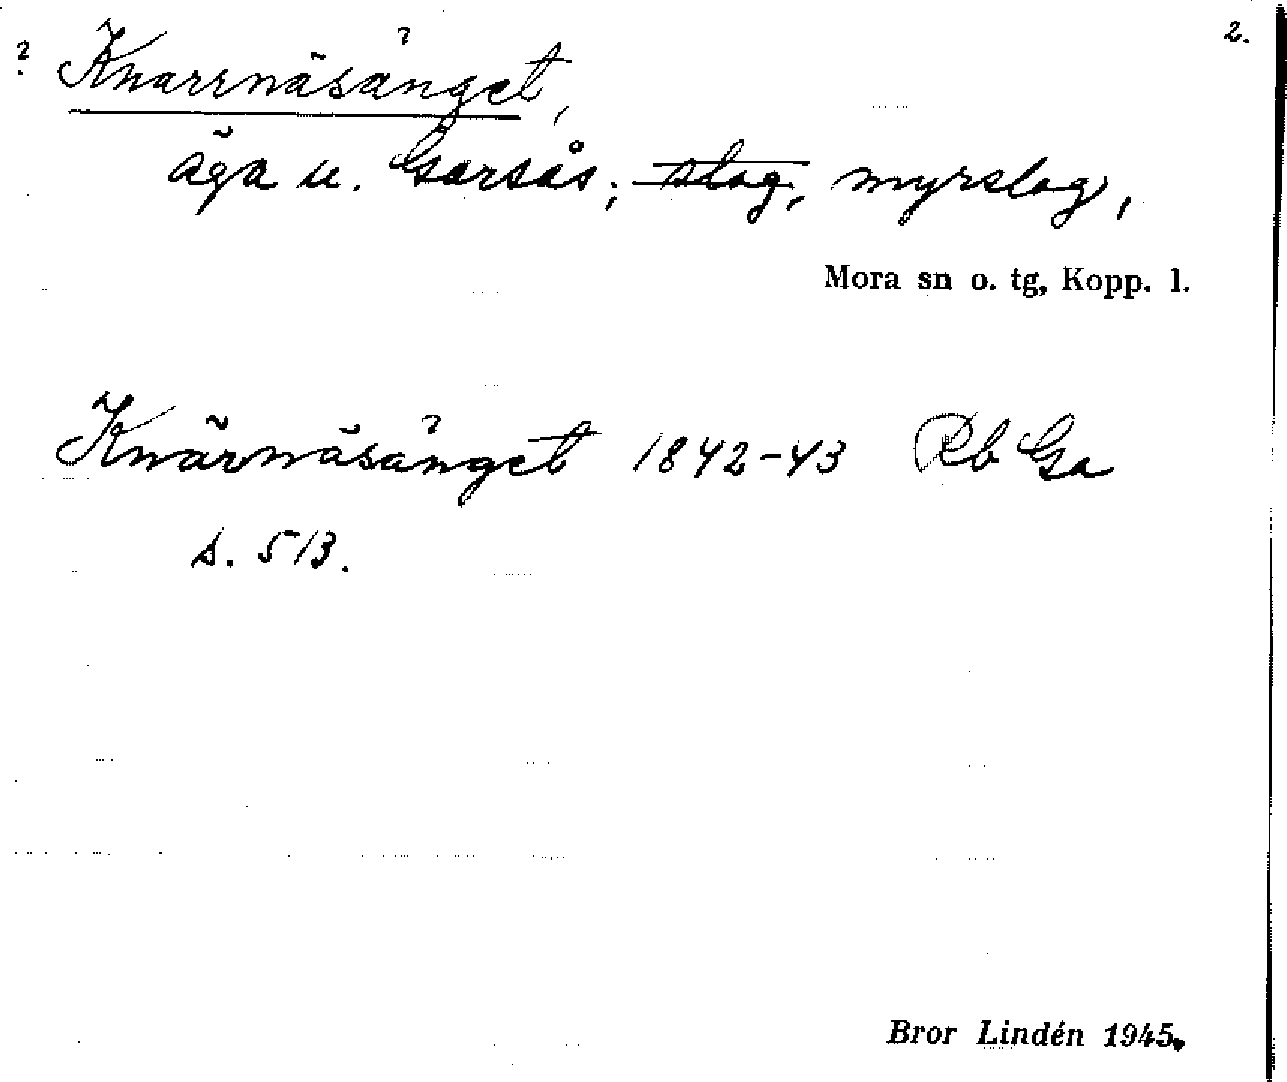 2.
? Knarrnäsänget,
äga u. Garsås; slog, myrslog,
Mora sn o. tg, Kopp. l.
Knärnäsänget 1842-43 Rb Ga
s. 513.
Bror Lindén 1945.